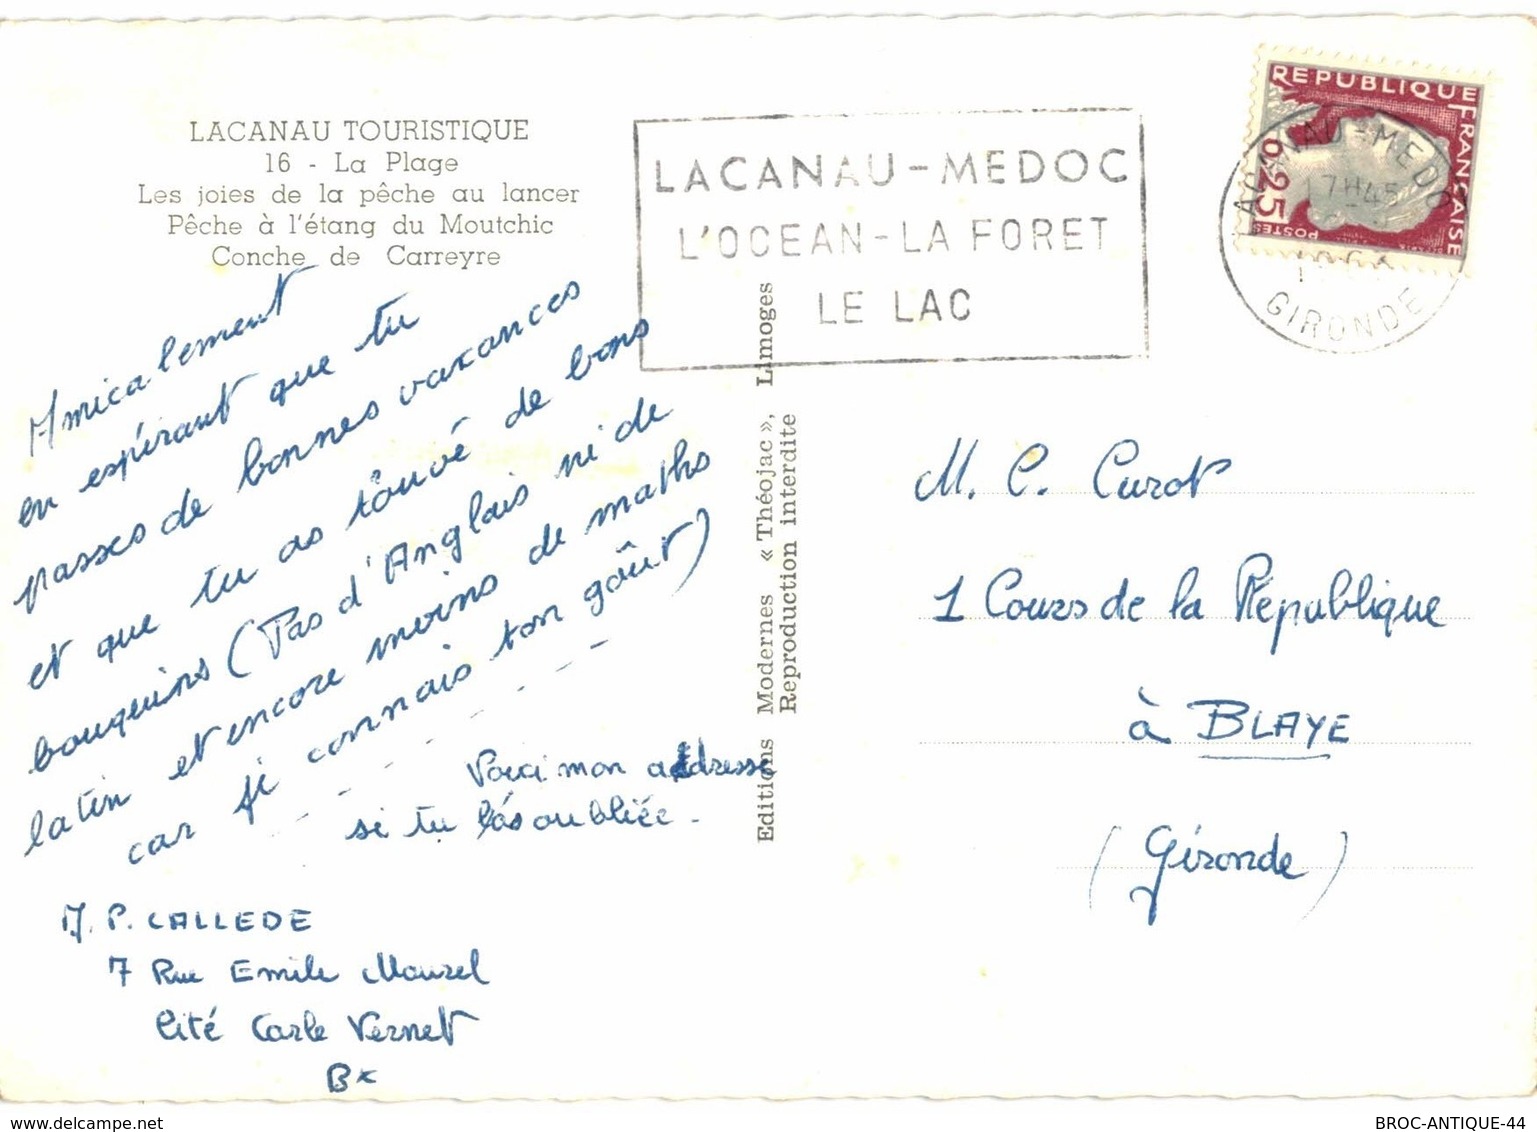 LACANAU TOURISTIQUE
16 - La Plage
Les joies de la pêche au lancer
Pêche à l'étang du Moutchic
Conche de Carreyre
Amicalement
en espérant que tu
passes de bonnes vacances
et que tu as trouvé de bons
bouquins (Pas d'Anglais ni de
latin et encore moins de maths
car je connais ton goût)
Voici mon addresse
si tu l'as oubliée.
P. CALLEDE
7 Rue Emile
Cité Carle Vernet
Bx
Editions Modernes « Théojac », Limoges
Reproduction interdite
LACANAU-MEDOC
L'OCEAN-LA FORET
LE LAC
REPUBLIQUE FRANÇAISE
0,25
POSTES
LACANAU-MEDOC
17H45
GIRONDE
M. C. Curot
1 Cours de la République
à BLAYE
(Gironde)
BROC-ANTIQUE-44